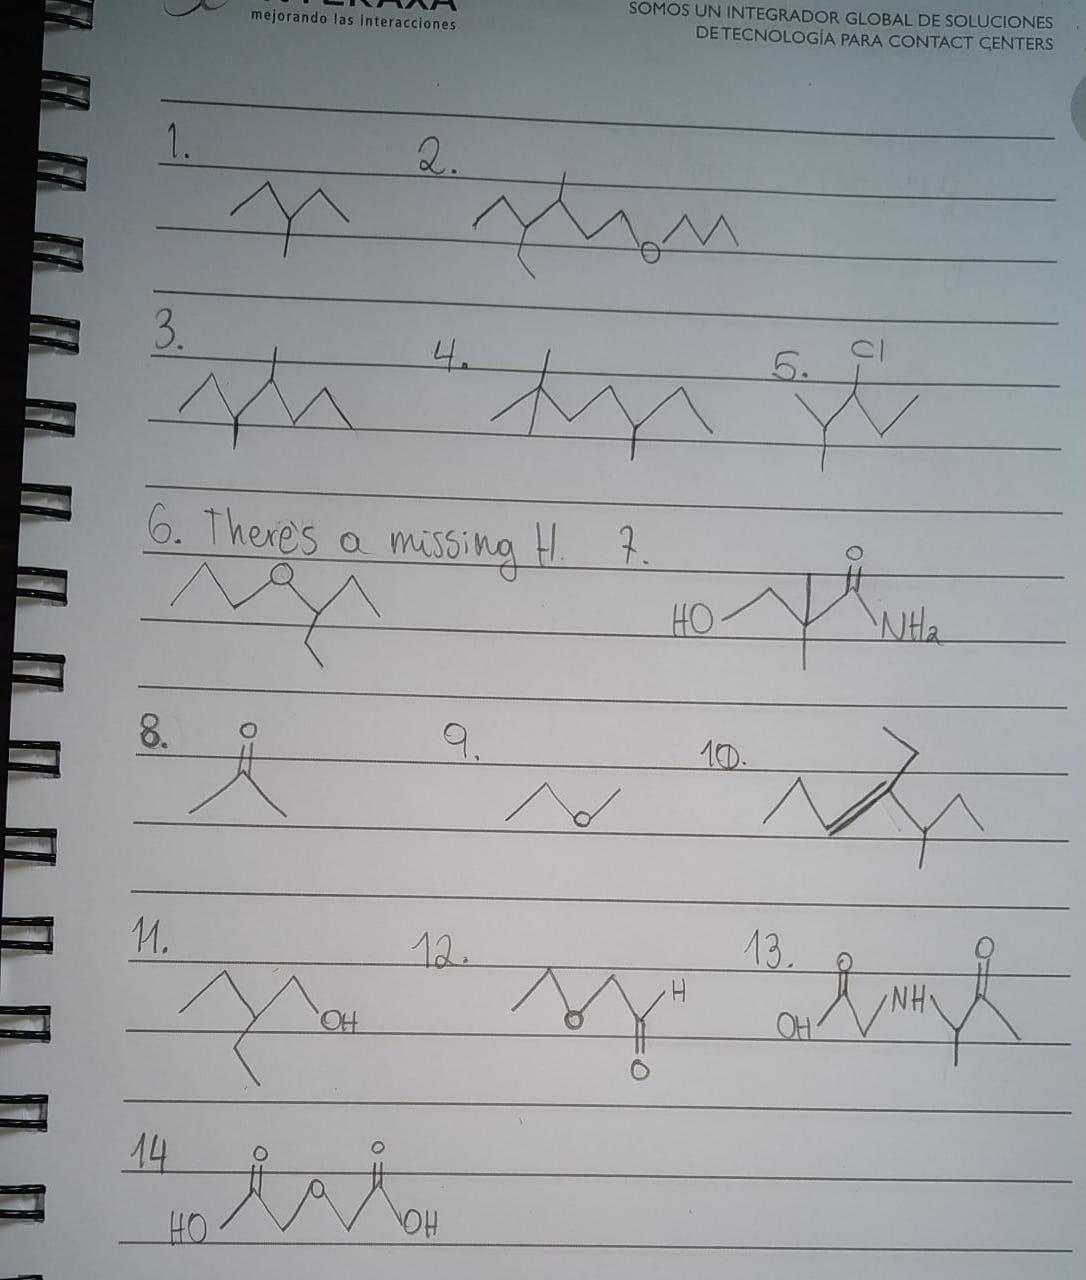 mejorando las interacciones
SOMOS UN INTEGRADOR GLOBAL DE SOLUCIONES
DE TECNOLOGÍA PARA CONTACT CENTERS
1.
2.
O
3.
4.
5.
Cl
6. There's a missing H.
O
7.
O
HO
NH2
8.
O
9.
O
10.
11.
OH
12.
O
H
O
13.
O
O
OH
NH
14
O
O
O
HO
OH